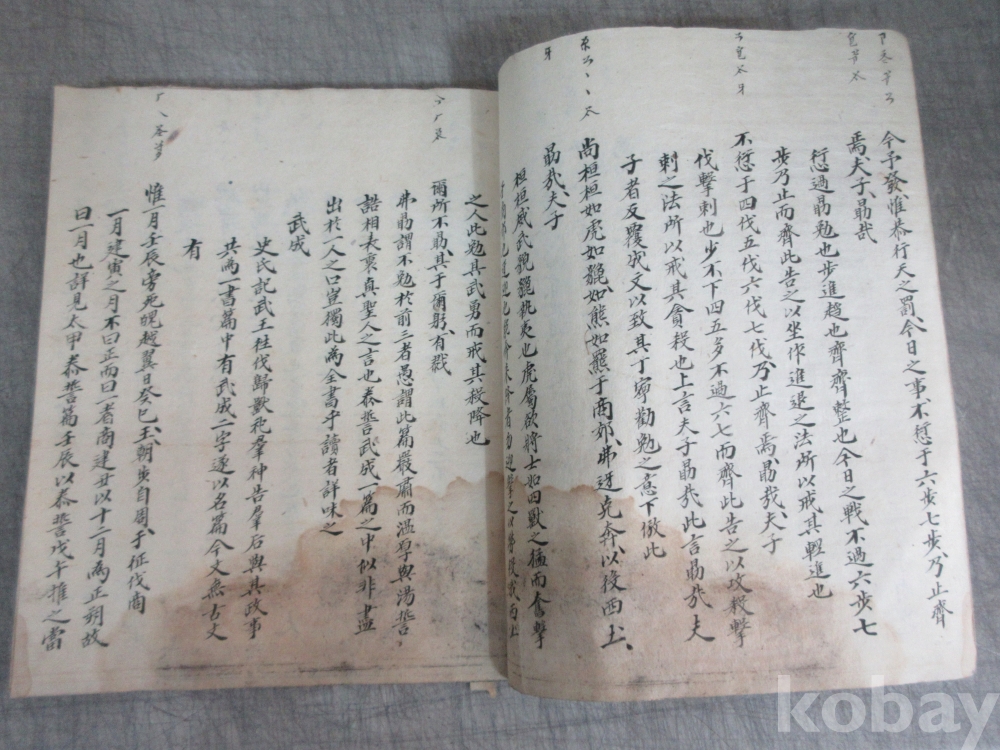 今予發惟恭行天之罰今日之事不愆于六步七步乃止齊
焉夫子勗哉
愆過勗勉也步進趨也齊齊整也今日之戰不過六步七
步乃止而齊此告之以坐作進退之法所以戒其輕進也
不愆于四伐五伐六伐七伐乃止齊焉勗哉夫子
伐擊刺也少不下四五多不過六七而齊此告之以攻殺擊
刺之法所以戒其貪殺也上言夫子勗哉此言勗哉夫
子者反覆成文以致其丁寧勸勉之意下倣此
尚桓桓如虎如貔如熊如羆于商郊弗迓克奔以役西土
勗哉夫子
桓桓威武貌貔執夷也虎屬欲將士如四獸之猛而奮擊
之人此勉其武勇而戒其殺降也
爾所不勗其于爾躬有戮
弗勗謂不勉於前三者愚謂此篇嚴肅而溫厚與湯誓
誥相表裏真聖人之言也泰誓武成一篇之中似非盡
出於一人之口豈獨此為全書乎讀者詳味之
武成
史氏記武王往伐歸獸祀羣神告羣后與其政事
共為一書篇中有武成二字遂以名篇今文無古文
有
惟一月壬辰旁死魄越翼日癸巳王朝步自周于征伐商
一月建寅之月不曰正而曰一者商建丑以十二月為正朔故
曰一月也詳見太甲泰誓篇壬辰以泰誓戊午推之當
kobay